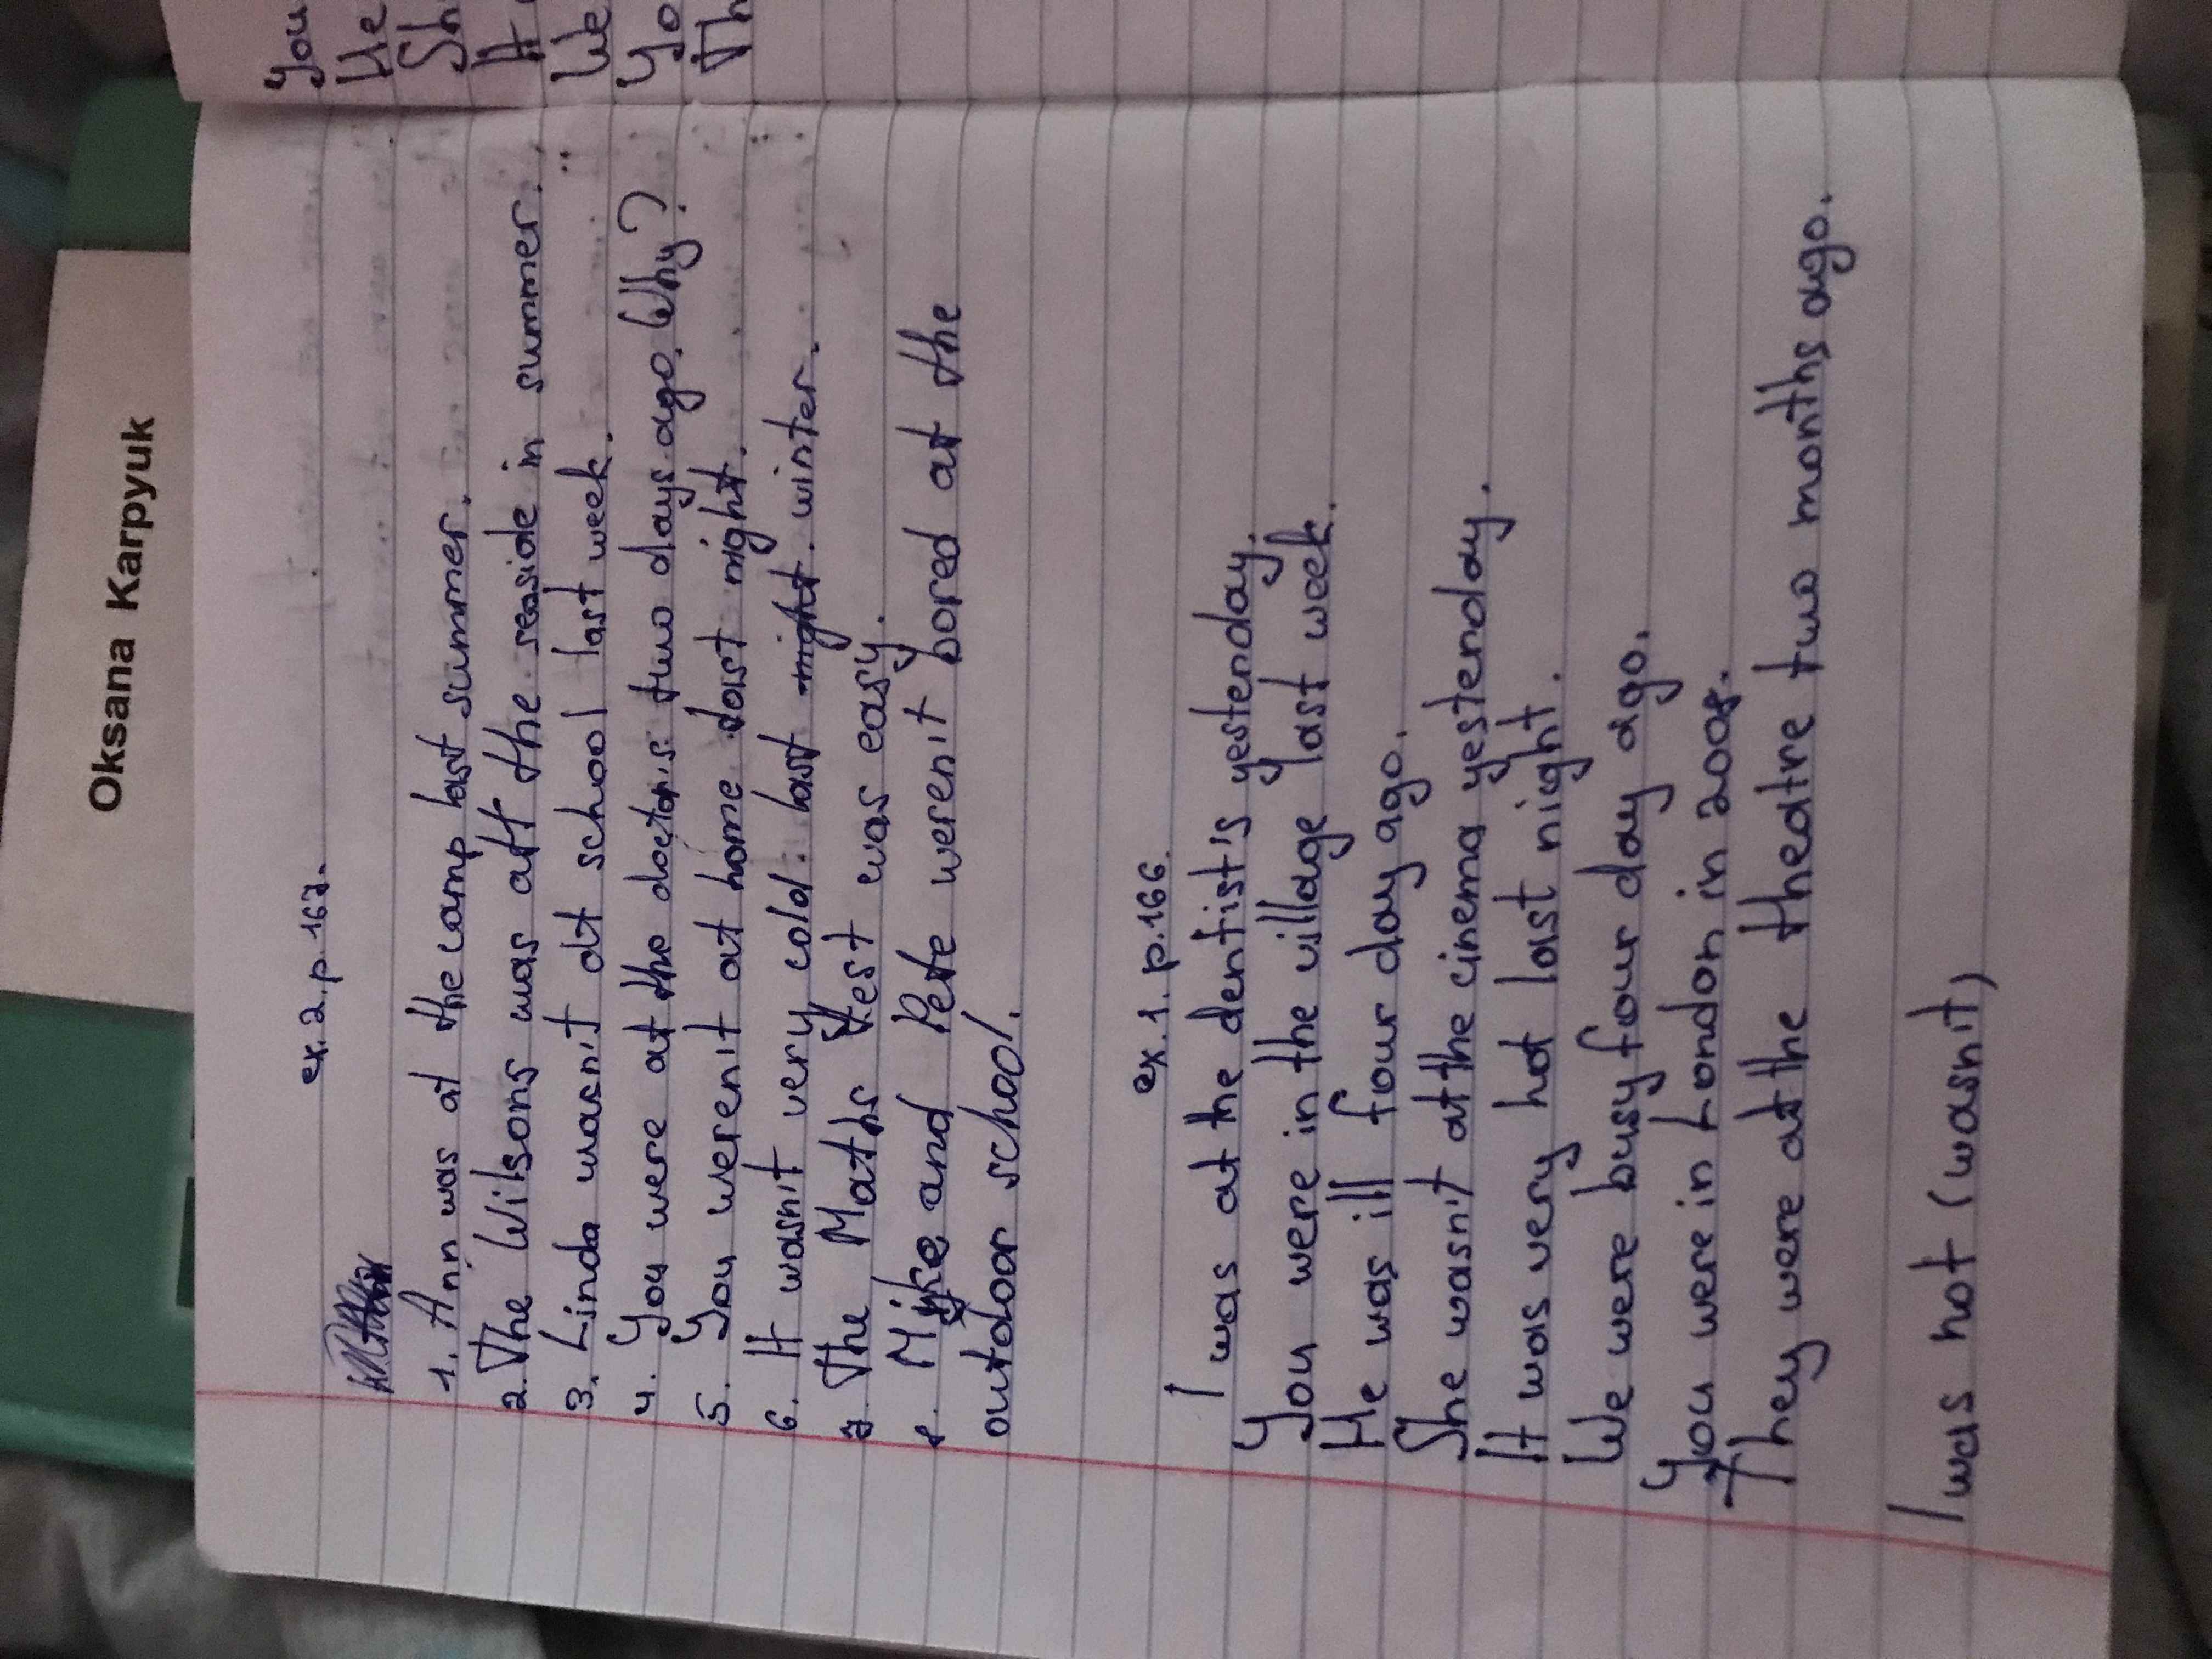 Oksana Karpyuk
You
He
Sh
It
We
Yo
Th
ex. 2. p. 167.
1. Ann was at the camp last summer.
2. The Wilsons was att the seaside in summer.
3. Linda wasn't at school last week.
4. You were at the doctor's two days ago. Why?
5. You weren't at home last night.
6. It wasn't very cold. last night. winter.
7. The Maths test was easy.
8. Mike and Pete weren't bored at the
outdoor school.
ex. 1. p. 166
I was at the dentist's yesterday.
You were in the village last week.
He was ill four day ago.
She wasn't at the cinema yesterday.
It was very hot last night.
We were busy four day ago.
You were in London in 2008.
They were at the theatre two months ago.
I was not (wasn't)